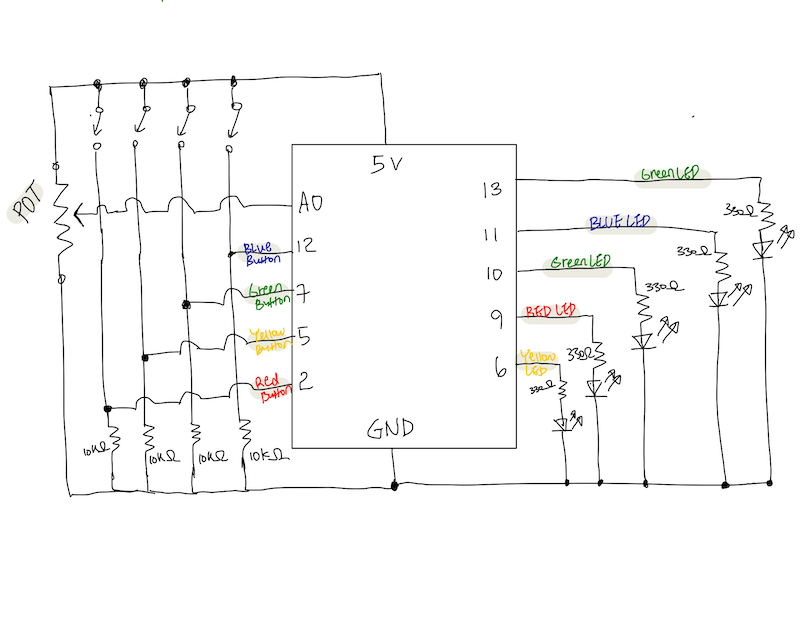 5V
POT
A0
12
Blue
Button
7
Green
Button
5
Yellow
Button
2
Red
Button
GND
10kΩ
10kΩ
10kΩ
10kΩ
13
Green LED
330Ω
11
BLUE LED
330Ω
10
Green LED
330Ω
9
RED LED
330Ω
6
Yellow
LED
330Ω